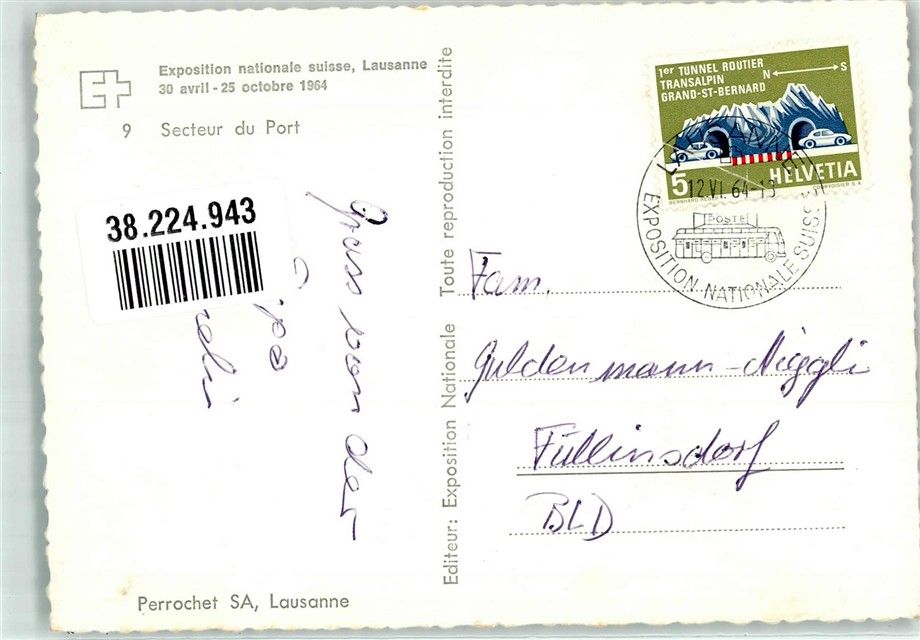 Exposition nationale suisse, Lausanne
30 avril - 25 octobre 1964
9 Secteur du Port
38.224.943
Gruss von der
Expo
Toute reproduction interdite
Editeur: Exposition Nationale
Perrochet SA, Lausanne
1er TUNNEL ROUTIER
TRANSALPIN
GRAND-ST-BERNARD
N S
5 HELVETIA
12.VI.64-13
POSTE
EXPOSITION NATIONALE SUISSE
Fam.
Guldenmann-Niggli
Füllinsdorf
BLD